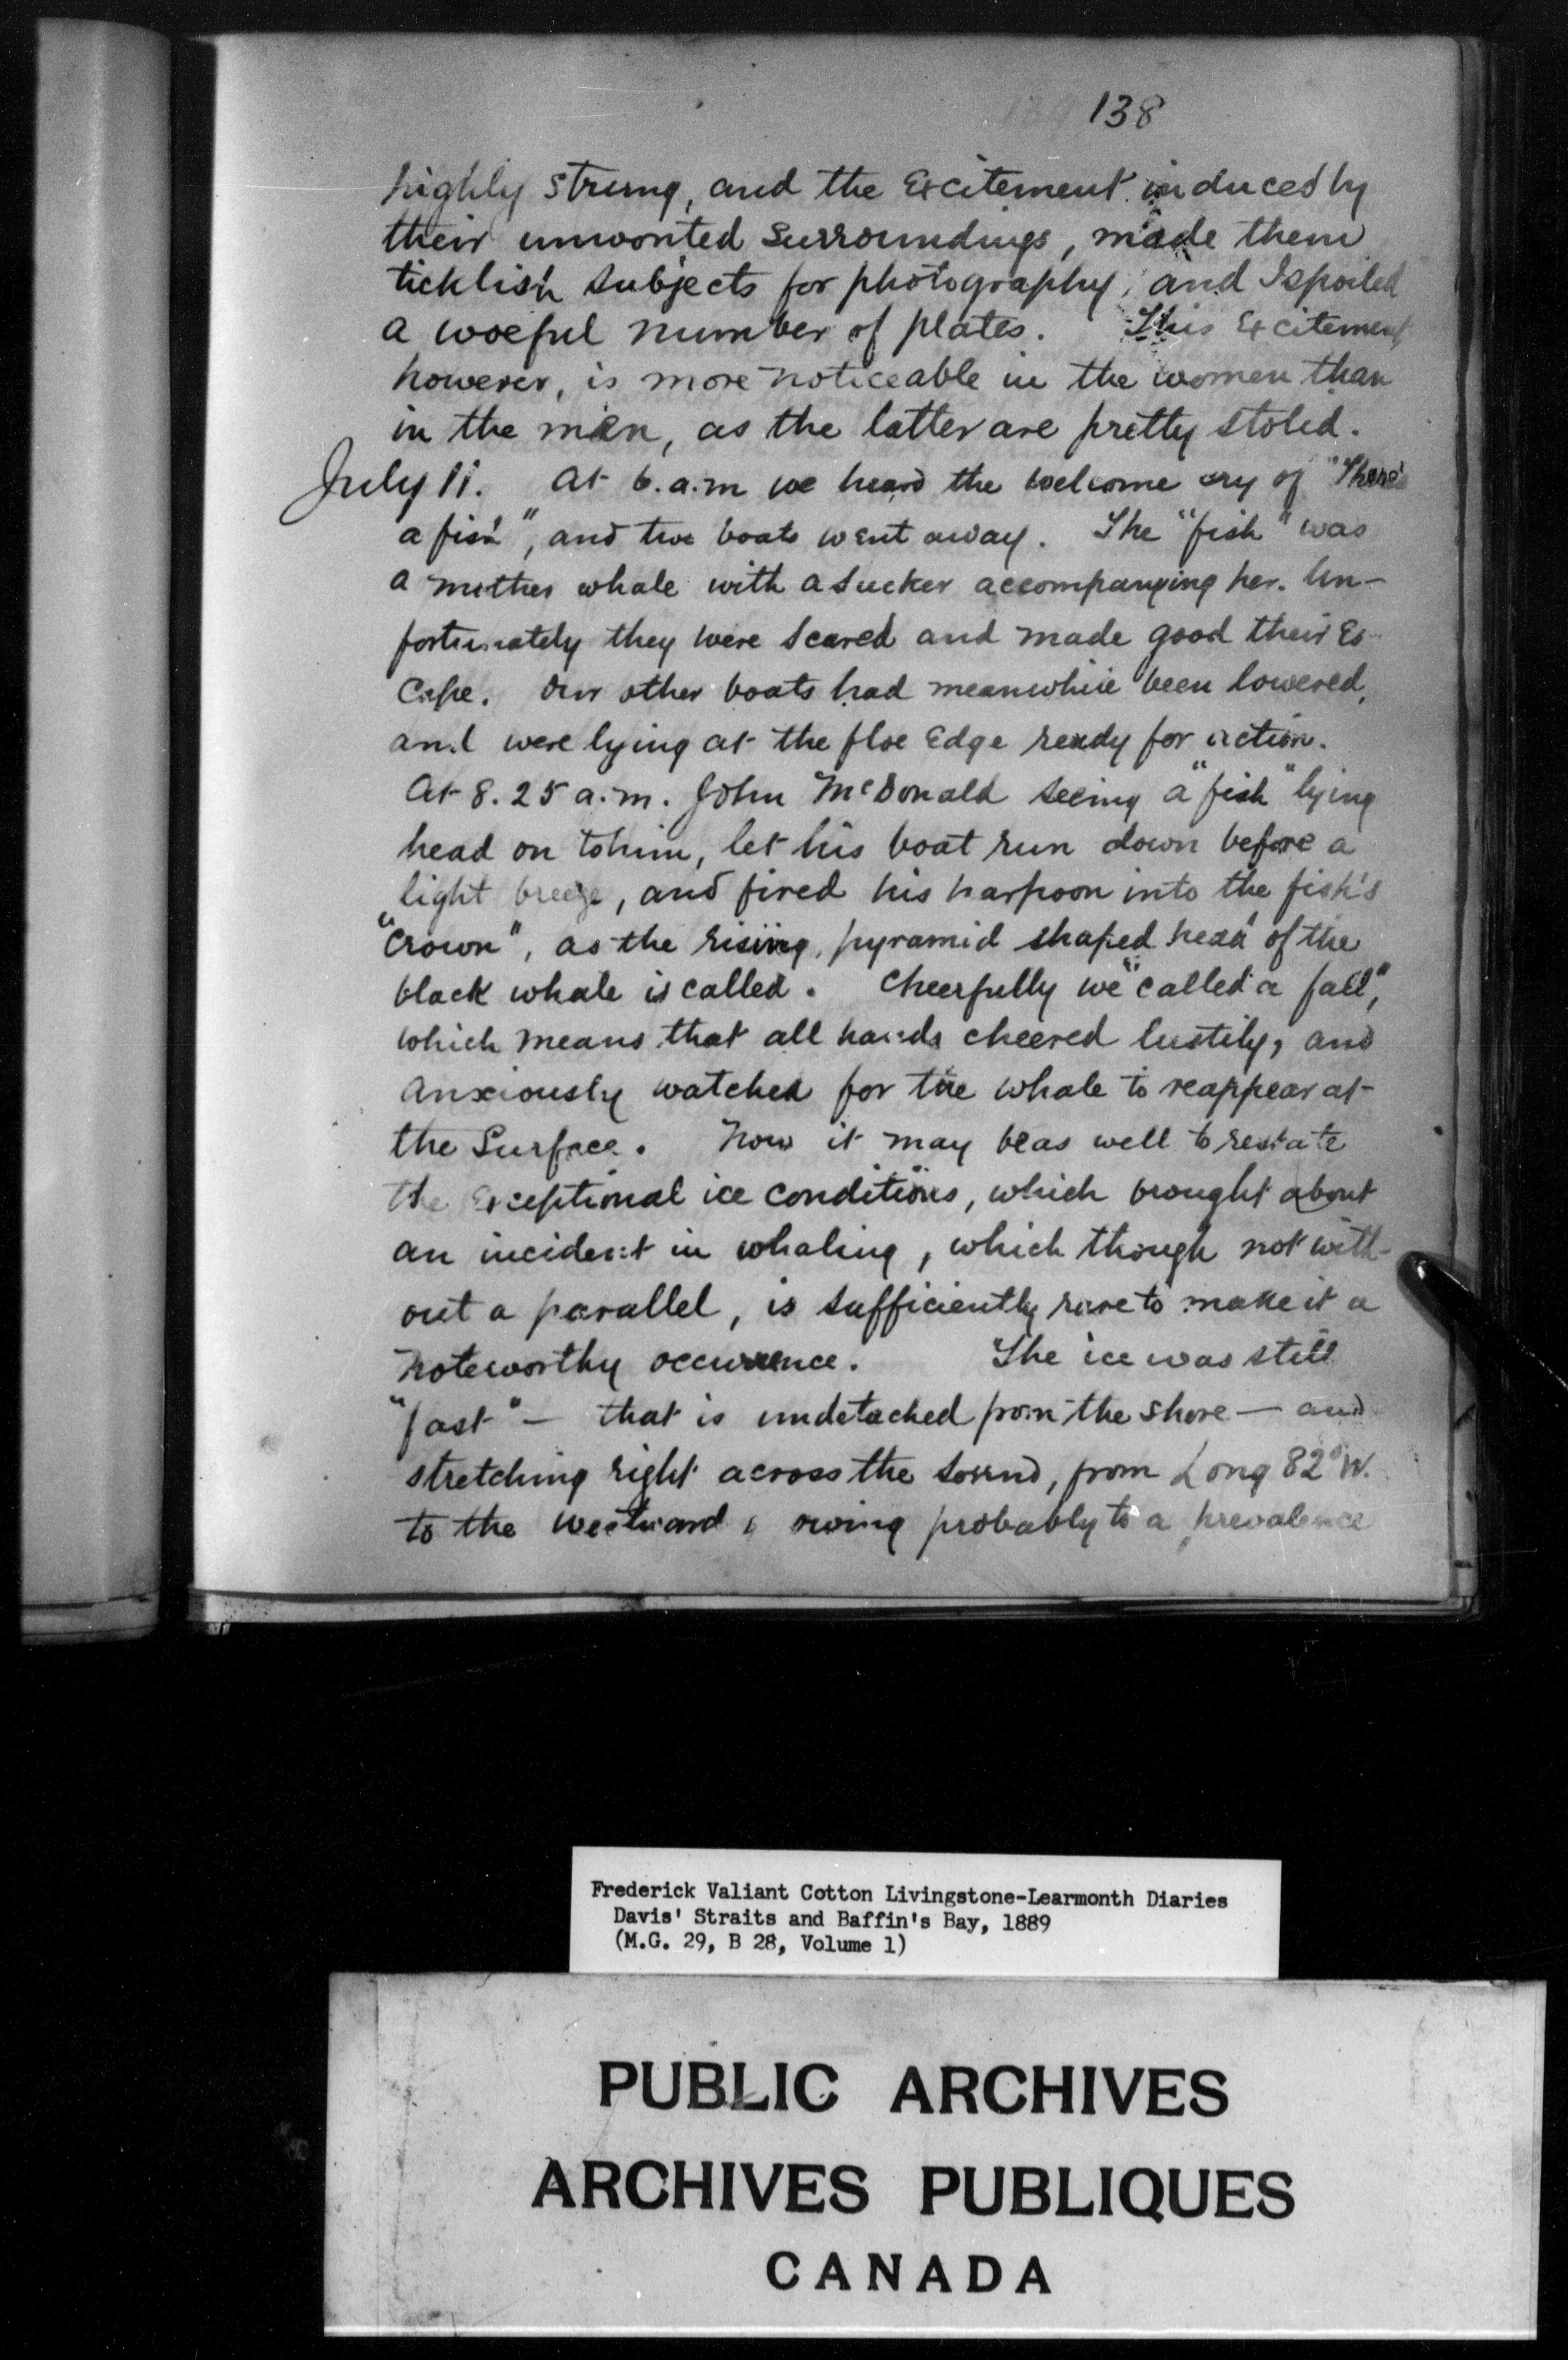 138
highly strung, and the excitement induced by
their unwonted surroundings, made them
ticklish subjects for photography, and I spoiled
a woeful number of plates. This excitement
however, is more noticeable in the women than
in the men, as the latter are pretty stolid.
July 11. At 6. a.m we heard the welcome cry of "There's
a fish", and two boats went away. The "fish" was
a mother whale with a sucker accompanying her. Un-
fortunately they were scared and made good their es-
cape. Our other boats had meanwhile been lowered,
and were lying at the floe edge ready for action.
At 8.25 a.m. John McDonald seeing a "fish" lying
head on to him, let his boat run down before a
light breeze, and fired his harpoon into the fish's
"crown", as the rising, pyramid shaped head of the
black whale is called. Cheerfully we "called a fall",
which means that all hands cheered lustily, and
anxiously watched for the whale to reappear at
the surface. Now it may be as well to restate
the exceptional ice conditions, which brought about
an incident in whaling, which though not with-
out a parallel, is sufficiently rare to make it a
noteworthy occurrence. The ice was still
"fast" — that is undetached from the shore — and
stretching right across the sound, from Long 82° W.
to the westward, owing probably to a prevalence
Frederick Valiant Cotton Livingstone-Learmonth Diaries
Davis' Straits and Baffin's Bay, 1889
(M.G. 29, B 28, Volume 1)
PUBLIC ARCHIVES
ARCHIVES PUBLIQUES
CANADA